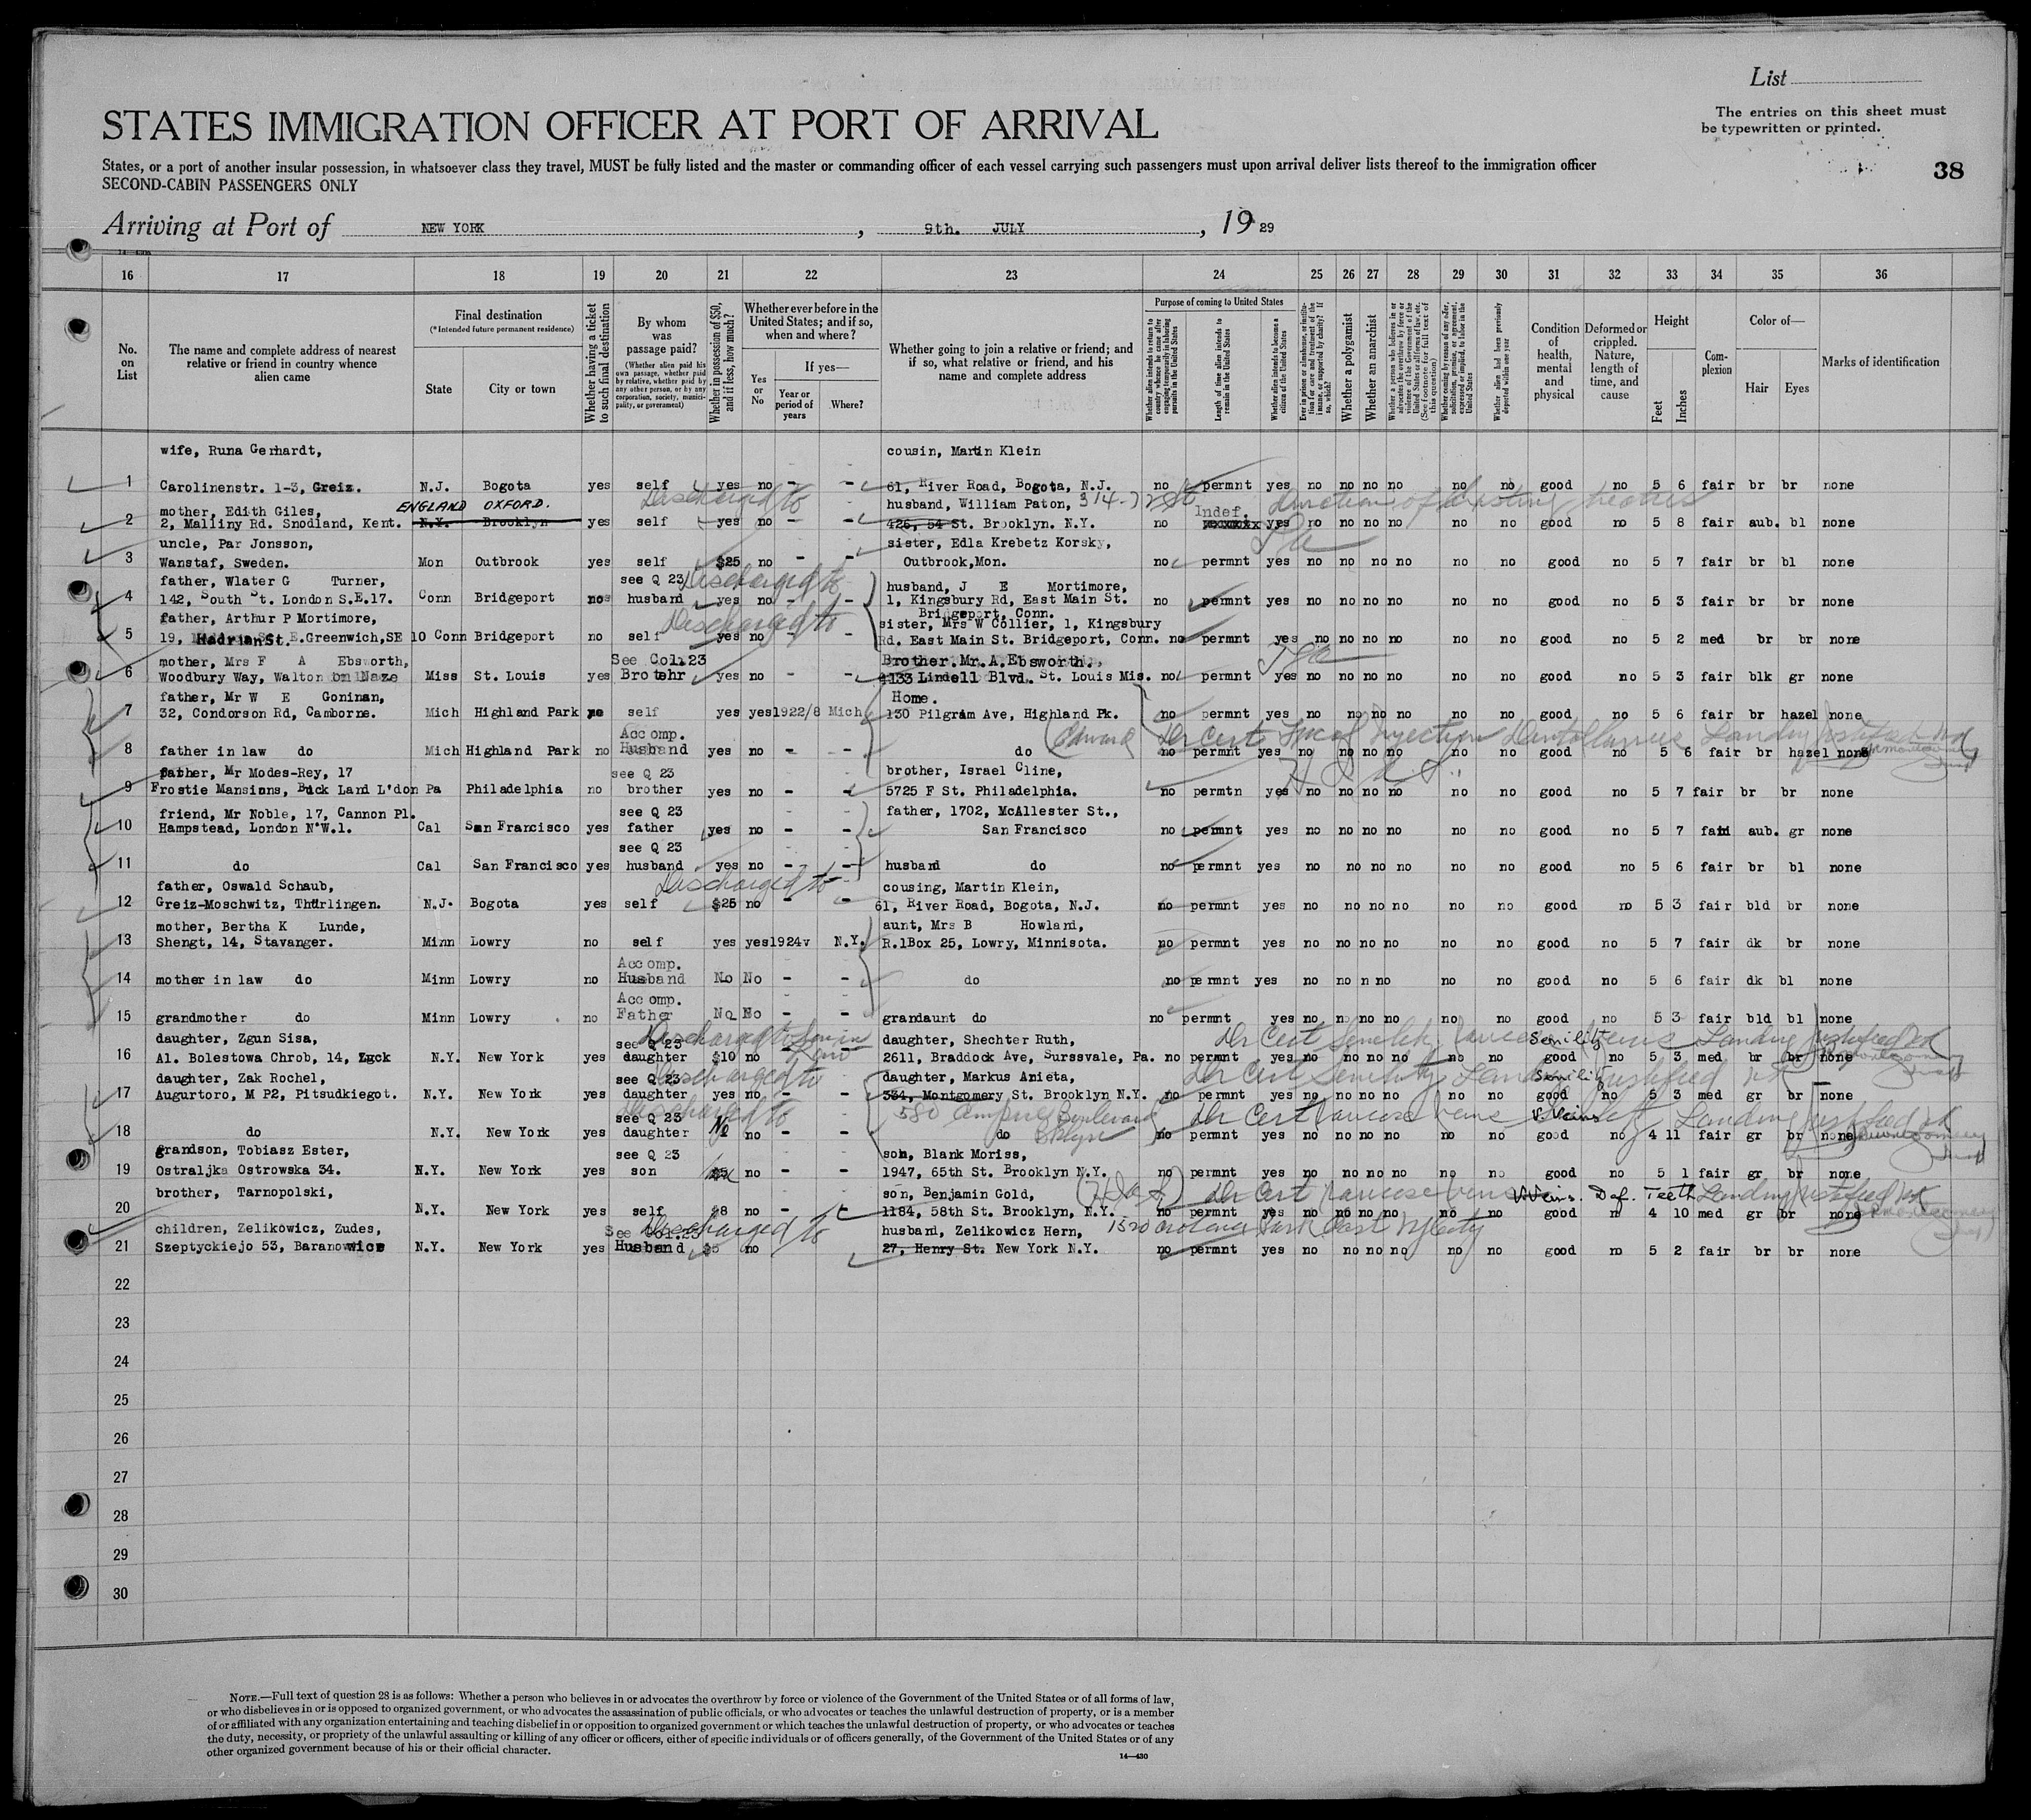 List
The entries on this sheet must
be typewritten or printed.
STATES IMMIGRATION OFFICER AT PORT OF ARRIVAL
States, or a port of another insular possession, in whatsoever class they travel, MUST be fully listed and the master or commanding officer of each vessel carrying such passengers must upon arrival deliver lists thereof to the immigration officer
SECOND-CABIN PASSENGERS ONLY
38
Arriving at Port of NEW YORK, 9th. JULY, 1929
16 17 18 19 20 21 22 23 24 25 26 27 28 29 30 31 32 33 34 35 36
No. on List
The name and complete address of nearest relative or friend in country whence alien came
Final destination
(*Intended future permanent residence)
State
City or town
Whether having a ticket to such final destination
By whom was passage paid?
(Whether alien paid his own passage, whether paid by relative, whether paid by any other person, or by any corporation, society, municipality, or government)
Whether in possession of $50, and if less, how much?
Whether ever before in the United States; and if so, when and where?
Yes or No
If yes—
Year or period of years
Where?
Whether going to join a relative or friend; and if so, what relative or friend, and his name and complete address
Purpose of coming to United States
Whether alien intends to return to country whence he came after engaging temporarily in laboring pursuits in the United States
Length of time alien intends to remain in the United States
Whether alien intends to become a citizen of the United States
Ever in prison or almshouse, or institution for care and treatment of the insane, or supported by charity? If so, which?
Whether a polygamist
Whether an anarchist
Whether a person who believes in or advocates the overthrow by force or violence of the Government of the United States or all forms of law, etc. (See footnote for full text of this question)
Whether coming by reason of any offer, solicitation, promise, or agreement, expressed or implied, to labor in the United States
Whether alien had been previously deported within one year
Condition of health, mental and physical
Deformed or crippled. Nature, length of time, and cause
Height
Feet
Inches
Complexion
Color of—
Hair
Eyes
Marks of identification
wife, Runa Gerhardt, cousin, Martin Klein
1 Carolinenstr. 1-3, Greiz. N.J. Bogota yes self yes no - - 61, River Road, Bogota, N.J. no permnt yes no no no no no no good no 5 6 fair br br none
mother, Edith Giles, ENGLAND OXFORD. Discharged to husband, William Paton, 314-72 St
2 2, Malliny Rd. Snodland, Kent. N.Y. Brooklyn yes self yes no - - 426, 54 St. Brooklyn. N.Y. no Indef. yes no no no no no no good no 5 8 fair aub. bl none
uncle, Par Jonsson, sister, Edla Krebetz Korsky,
3 Wanstaf, Sweden. Mon Outbrook yes self $25 no - - Outbrook,Mon. no permnt yes no no no no no no good no 5 7 fair br bl none
father, Wlater G Turner, see Q 23 Discharged to husband, J E Mortimore,
4 142, South St. London S.E.17. Conn Bridgeport husband yes no - - 1, Kingsbury Rd, East Main St. no permnt yes no no no no no no good no 5 3 fair br br none
Bridgeport, Conn.
father, Arthur P Mortimore, Discharged to sister, Mrs W Collier, 1, Kingsbury
5 19, Hadrian St. E.Greenwich,SE 10 Conn Bridgeport no self yes no - - Rd. East Main St. Bridgeport, Conn. no permnt yes no no no no no no good no 5 2 med br br none
mother, Mrs F A Ebsworth, See Col.23 Brother.Mr.A.Ebsworth.,
6 Woodbury Way, Walton on Naze Miss St. Louis yes Brotehr yes no - - 4133 Lindell Blvd. St. Louis Mis. no permnt yes no no no no no no good no 5 3 fair blk gr none
father, Mr W E Goninan, Home.
7 32, Condorson Rd, Camborne. Mich Highland Park self yes yes 1922/8 Mich 130 Pilgram Ave, Highland Pk. no permnt yes no no no no no no good no 5 6 fair br hazel none
Accomp.
8 father in law do Mich Highland Park no Husband yes no - - do no permnt yes no no no no no no good no 5 6 fair br hazel none
father, Mr Modes-Rey, 17 see Q 23 brother, Israel Cline,
9 Frostie Mansions, Buck Land L'don Pa Philadelphia no brother yes no - - 5725 F St. Philadelphia. no permtn yes no no no no no no good no 5 7 fair br br none
friend, Mr Noble, 17, Cannon Pl. see Q 23 father, 1702, McAllester St.,
10 Hampstead, London N.W.1. Cal San Francisco yes father yes no - - San Francisco no permnt yes no no no no no no good no 5 7 fair aub. gr none
see Q 23
11 do Cal San Francisco yes husband yes no - - husband do no permnt yes no no no no no no good no 5 6 fair br bl none
father, Oswald Schaub, Discharged to cousing, Martin Klein,
12 Greiz-Moschwitz, Thürlingen. N.J. Bogota yes self $25 no - - 61, River Road, Bogota, N.J. no permnt yes no no no no no no good no 5 3 fair bld br none
mother, Bertha K Lunde, aunt, Mrs B Howland,
13 Shengt, 14, Stavanger. Minn Lowry no self yes yes 1924 N.Y. R.1Box 25, Lowry, Minnisota. no permnt yes no no no no no no good no 5 7 fair dk br none
Accomp.
14 mother in law do Minn Lowry no Husband No No - - do no permnt yes no no n no no no good no 5 6 fair dk bl none
Accomp.
15 grandmother do Minn Lowry no Father No No - - grandaunt do no permnt yes no no no no no no good no 5 3 fair bld bl none
daughter, Zgun Sisa, see Q 23 Discharged to daughter, Shechter Ruth, Dr Cert Senility Senility Landing justified
16 Al. Bolestowa Chrob, 14, Zgck N.Y. New York yes daughter $10 no 2611, Braddock Ave, Surssvale, Pa. no permnt yes no no no no no no good no 5 3 med br br none
daughter, Zak Rochel, see Q 23 Discharged to daughter, Markus Anieta, Dr Cert Senility Senility Landing justified
17 Augurtoro, M P2, Pitsudkiegot. N.Y. New York yes daughter yes no - - 334, Montgomery St. Brooklyn N.Y. no permnt yes no no no no no no good no 5 3 med gr br none
see Q 23 Discharged to 580 Empire Boulevard Bklyn Dr Cert varicose veins V. Veins Landing justified
18 do N.Y. New York yes daughter No no - - do no permnt yes no no no no no no good no 4 11 fair gr br none
grandson, Tobiasz Ester, see Q 23 son, Blank Moriss,
19 Ostraljka Ostrowska 34. N.Y. New York yes son no - - 1947, 65th St. Brooklyn N.Y. no permnt yes no no no no no no good no 5 1 fair gr br none
brother, Tarnopolski, son, Benjamin Gold, Dr Cert varicose veins V.Veins. Def. Teeth Landing justified
20 N.Y. New York yes self $8 no - - 1184, 58th St. Brooklyn, N.Y. no permnt yes no no no no no no good n 4 10 med gr br none
children, Zelikowicz, Zudes, See Col.23 Discharged to husband, Zelikowicz Hern,
21 Szeptyckiejo 53, Baranowice N.Y. New York yes Husband $5 no 27, Henry St. New York N.Y. no permnt yes no no no no no no good no 5 2 fair br br none
22
23
24
25
26
27
28
29
30
NOTE.—Full text of question 28 is as follows: Whether a person who believes in or advocates the overthrow by force or violence of the Government of the United States or of all forms of law,
or who disbelieves in or is opposed to organized government, or who advocates the assassination of public officials, or who advocates or teaches the unlawful destruction of property, or is a member
of or affiliated with any organization entertaining and teaching disbelief in or opposition to organized government or which teaches the unlawful destruction of property, or who advocates or teaches
the duty, necessity, or propriety of the unlawful assaulting or killing of any officer or officers, either of specific individuals or of officers generally, of the Government of the United States or of any
other organized government because of his or their official character.
14—430